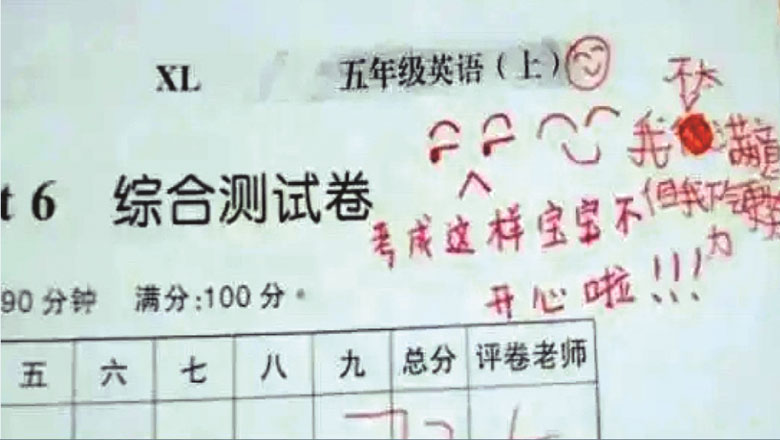 XL 五年级英语（上）
不太
我 满意
t 6 综合测试卷
但我 努
力
考成这样宝宝不
开心啦!!!
90 分钟 满分:100 分。
五 六 七 八 九 总分 评卷老师